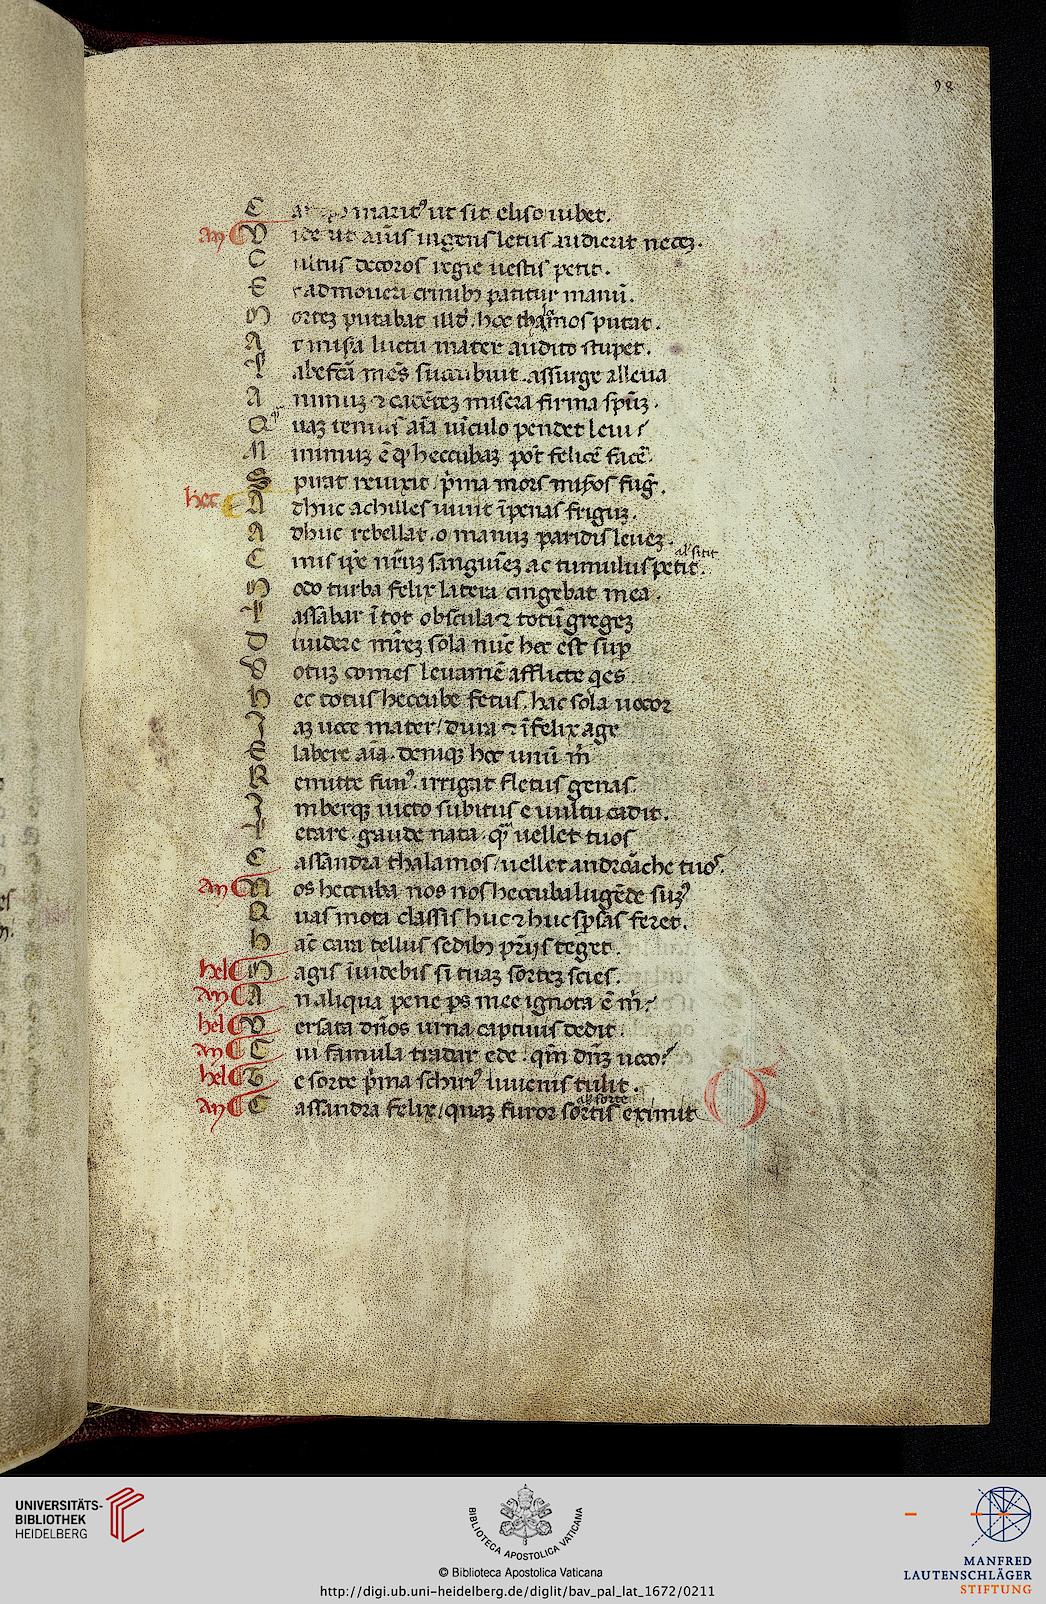 98
C a maritꝰ ut sit eliso iubet.
an͛ ¶ V ide ut aīus ingens letus audierit necē.
C ultus decoros regie uestis petit.
E t admoueri crinibꝫ patitur manū.
M ortē putabat illđ. hoc thalamos putat.
A t mis̄a luctu mater audito stupet.
L abefcā mēs succubuit. assurge alleua
A nimū ⁊ cadētē misera firma sp̄ū.
Q uā tenuis aīa uīculo pendet leui?
M inimū ē qđ heccubā pōt felicē facē.
S pirat reuixit / p̄ma mors misos fuḡ.
hec ¶ A dhuc achilles uiuit ī penas frigū.
A dhuc rebellat. o manū paridis leuē.
al' sitit
C inis ip̄e nr̄ū sanguīē ac tumulus petit.
M odo turba felix latera cingebat mea.
L assabar ī tot obscula ⁊ totū gregē
D iuidere mr̄ē sola nūc hec est sup̄
V otū comes leuamē afflicte q̄es
H ec totus heccube fetus. hac sola uocor
I ā uoce mater / dura ⁊ īfelix age
E labere aīa. deniqꝫ hoc unū m̄
R emitte funꝰ. irrigat fletus genas.
I mberqꝫ uicto subitus e uultu cadit.
L etare. gaude nata. qͣ uellet tuos
C assandra thalamos / uellet andromache tuoˢ.
an͛ ¶ N os heccuba nos nos heccuba lugēde sum̄ꝰ
Q uas mota classis huc ⁊ huc sp̄sas feret.
H āc cara tellus sedibꝫ pr̄ijs teget.
hel ¶ M agis īuidebis si tuā sortē scies.
an͛ ¶ A n aliqua pene ps mee ignota ē m̄?
hel ¶ V ersata dn̄os urna captiuis dedit.
an͛ ¶ C ui famula tradar ede. qm̄ dn̄ū uoco?
hel ¶ T e sorte p̄ma schirꝰ iuuenis tulit.
al' sorte
an͛ ¶ C assandra felix / quā furor sortis eximit
UNIVERSITÄTS-
BIBLIOTHEK
HEIDELBERG
BIBLIOTECA APOSTOLICA VATICANA
© Biblioteca Apostolica Vaticana
http://digi.ub.uni-heidelberg.de/diglit/bav_pal_lat_1672/0211
MANFRED
LAUTENSCHLÄGER
STIFTUNG